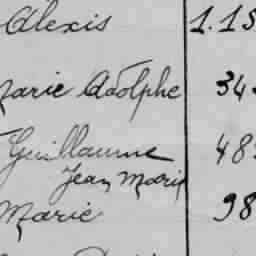 Alexis 1.15
Marie Adolphe 34
Guillaume 48
Jean Marie
Marie 98